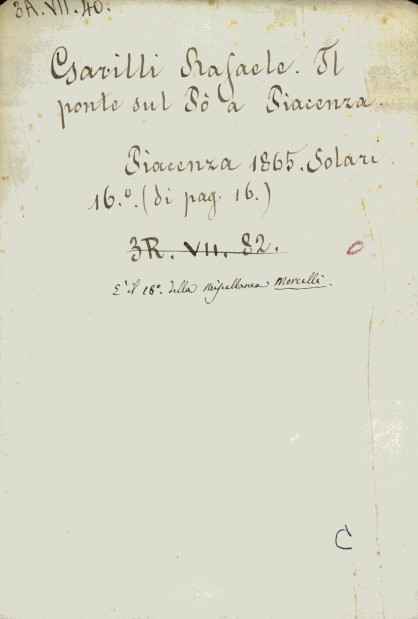 3A. VII. 40.
Csavilli Rafaele. Il
ponte sul Pò a Piacenza.
Piacenza 1865. Solari.
16.º. (di pag. 16.)
3R. VII. 82.
E' il 18º. della Miscellanea Morcelli.
C